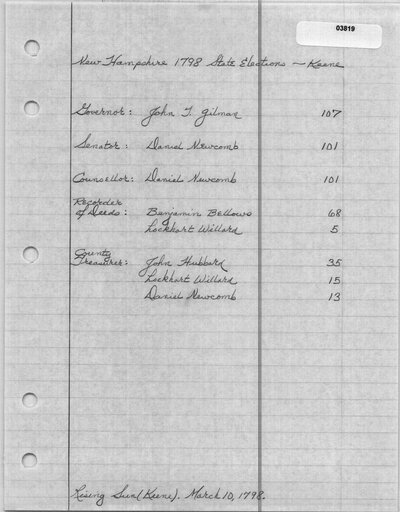 03819
New Hampshire 1798 State Elections — Keene
Governor: John T. Gilman 107
Senator: Daniel Newcomb 101
Counsellor: Daniel Newcomb 101
Recorder
of Deeds: Benjamin Bellows 68
Lockhart Willard 5
County
Treasurer: John Hubbard 35
Lockhart Willard 15
Daniel Newcomb 13
Rising Sun (Keene). March 10, 1798.